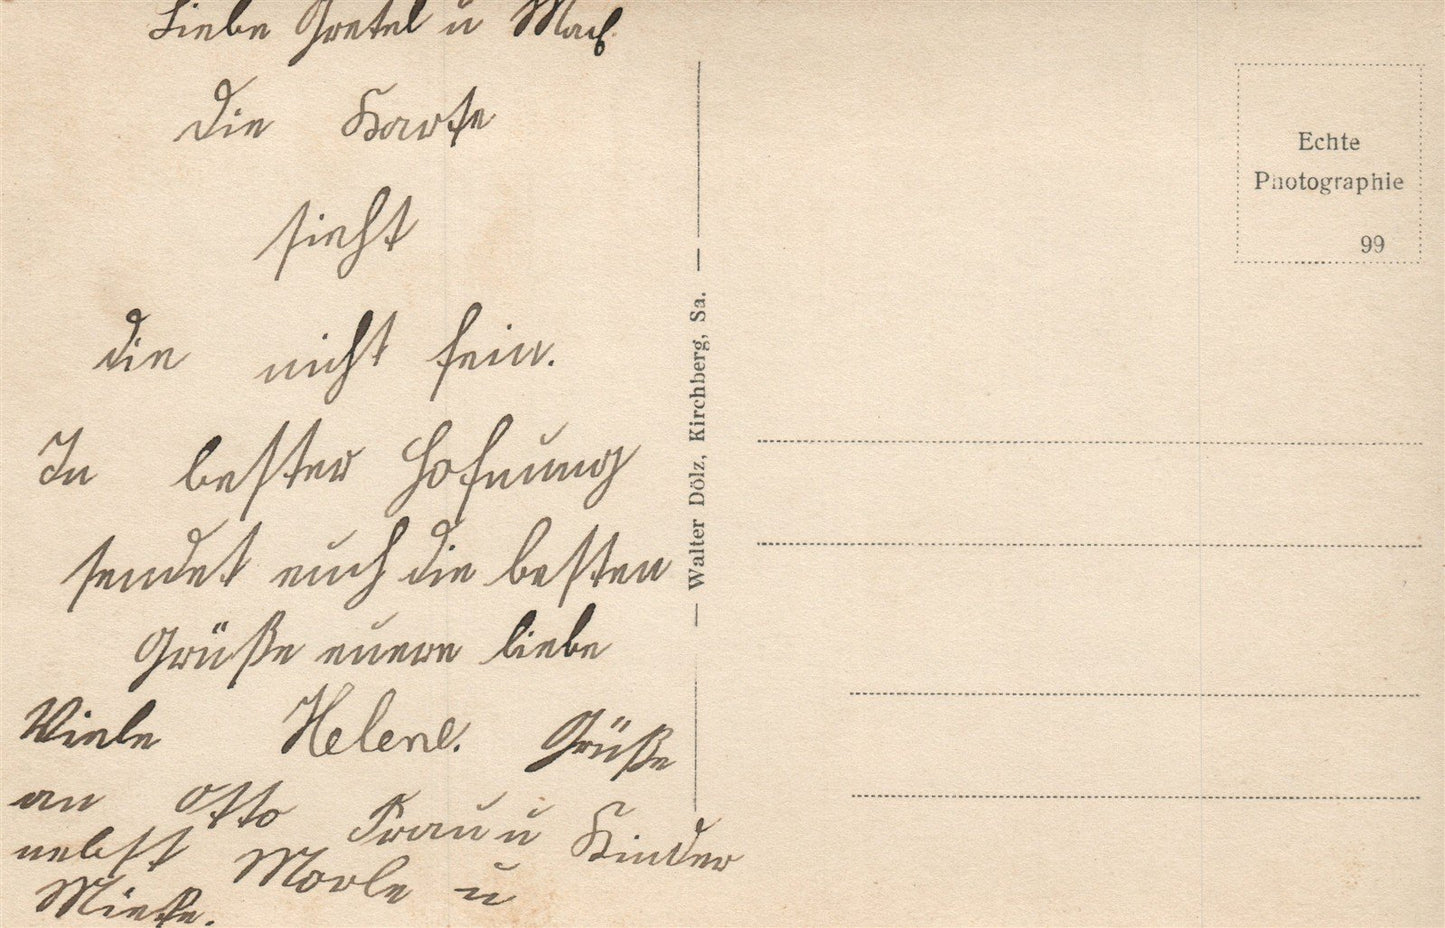 Liebe Gretel u Max
Die Karte
sieht
die nicht fein.
In bester Hofnung
sendet euch die besten
Grüße euere liebe
Viele Helene. Grüße
an Otto Frau u Kinder
nebst Morle u
Mieke.
Walter Dölz, Kirchberg, Sa.
Echte
Photographie
99